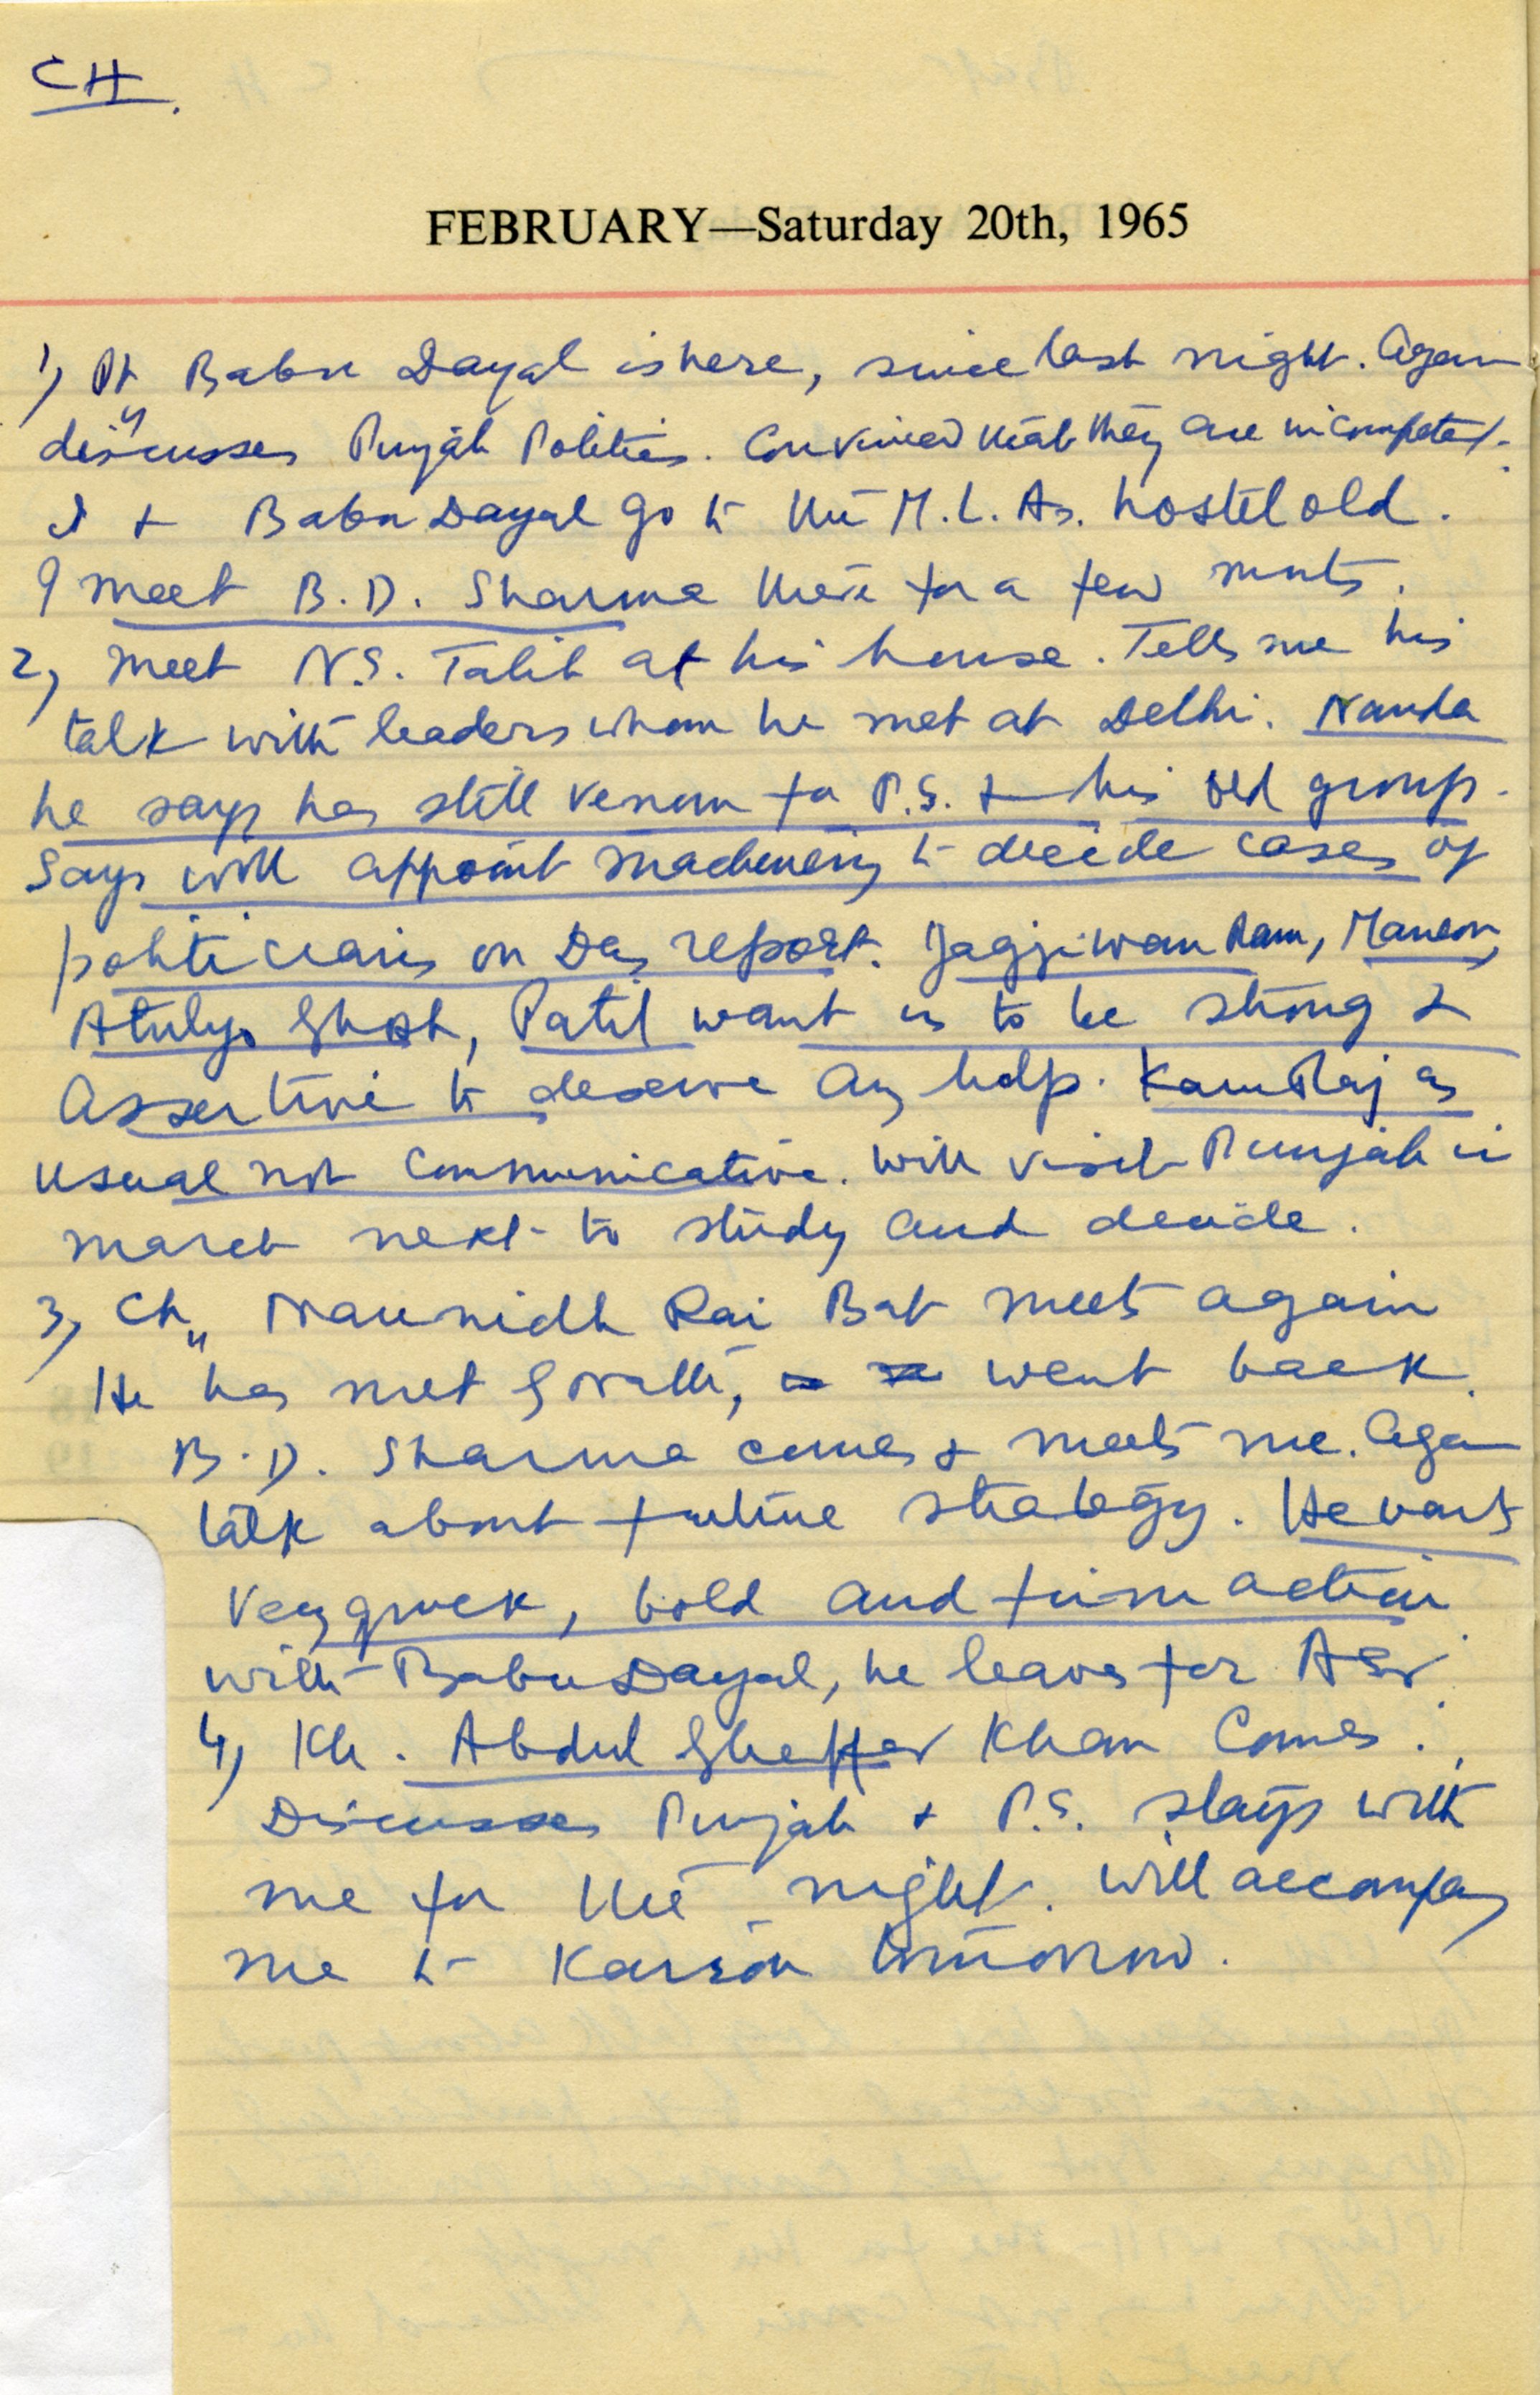 CH.
FEBRUARY—Saturday 20th, 1965
1) Pt Babu Dayal is here, since last night. Again
discusses Punjab Politics. Convinced that they are incompetent.
I & Babu Dayal go to the M.L.As. hostel old.
I meet B.D. Sharma there for a few munts.
2) Meet N.S. Talib at his house. Tells me his
talk with leaders whom he met at Delhi. Nanda
he says has still venom for P.S. & his old group.
Says will appoint machinery to decide cases of
politicians on Das report. Jagjiwan Ram, Menon,
Atulya Ghosh, Patil want us to be strong &
assertive to deserve any help. KamRaj as
usual not communicative. Will visit Punjab in
march next to study and decide.
3) Ch. Naunidh Rai Bat meets again
He has met, went back.
B.D. Sharma comes & meets me. Again
talk about future strategy. He wants
very quick, bold and firm action
with Babu Dayal, he leaves for ASr.
4) Kh. Abdul Ghaffar Khan Comes.
Discusses Punjab & P.S. stays with
me for the night. Will accompany
me to Kairon tomorrow.